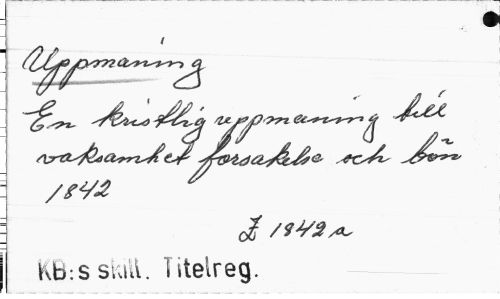 Uppmaning
En kristlig uppmaning till
vaksamhet försakelse och bön
1842
Z 1842 a
KB:s skill. Titelreg.